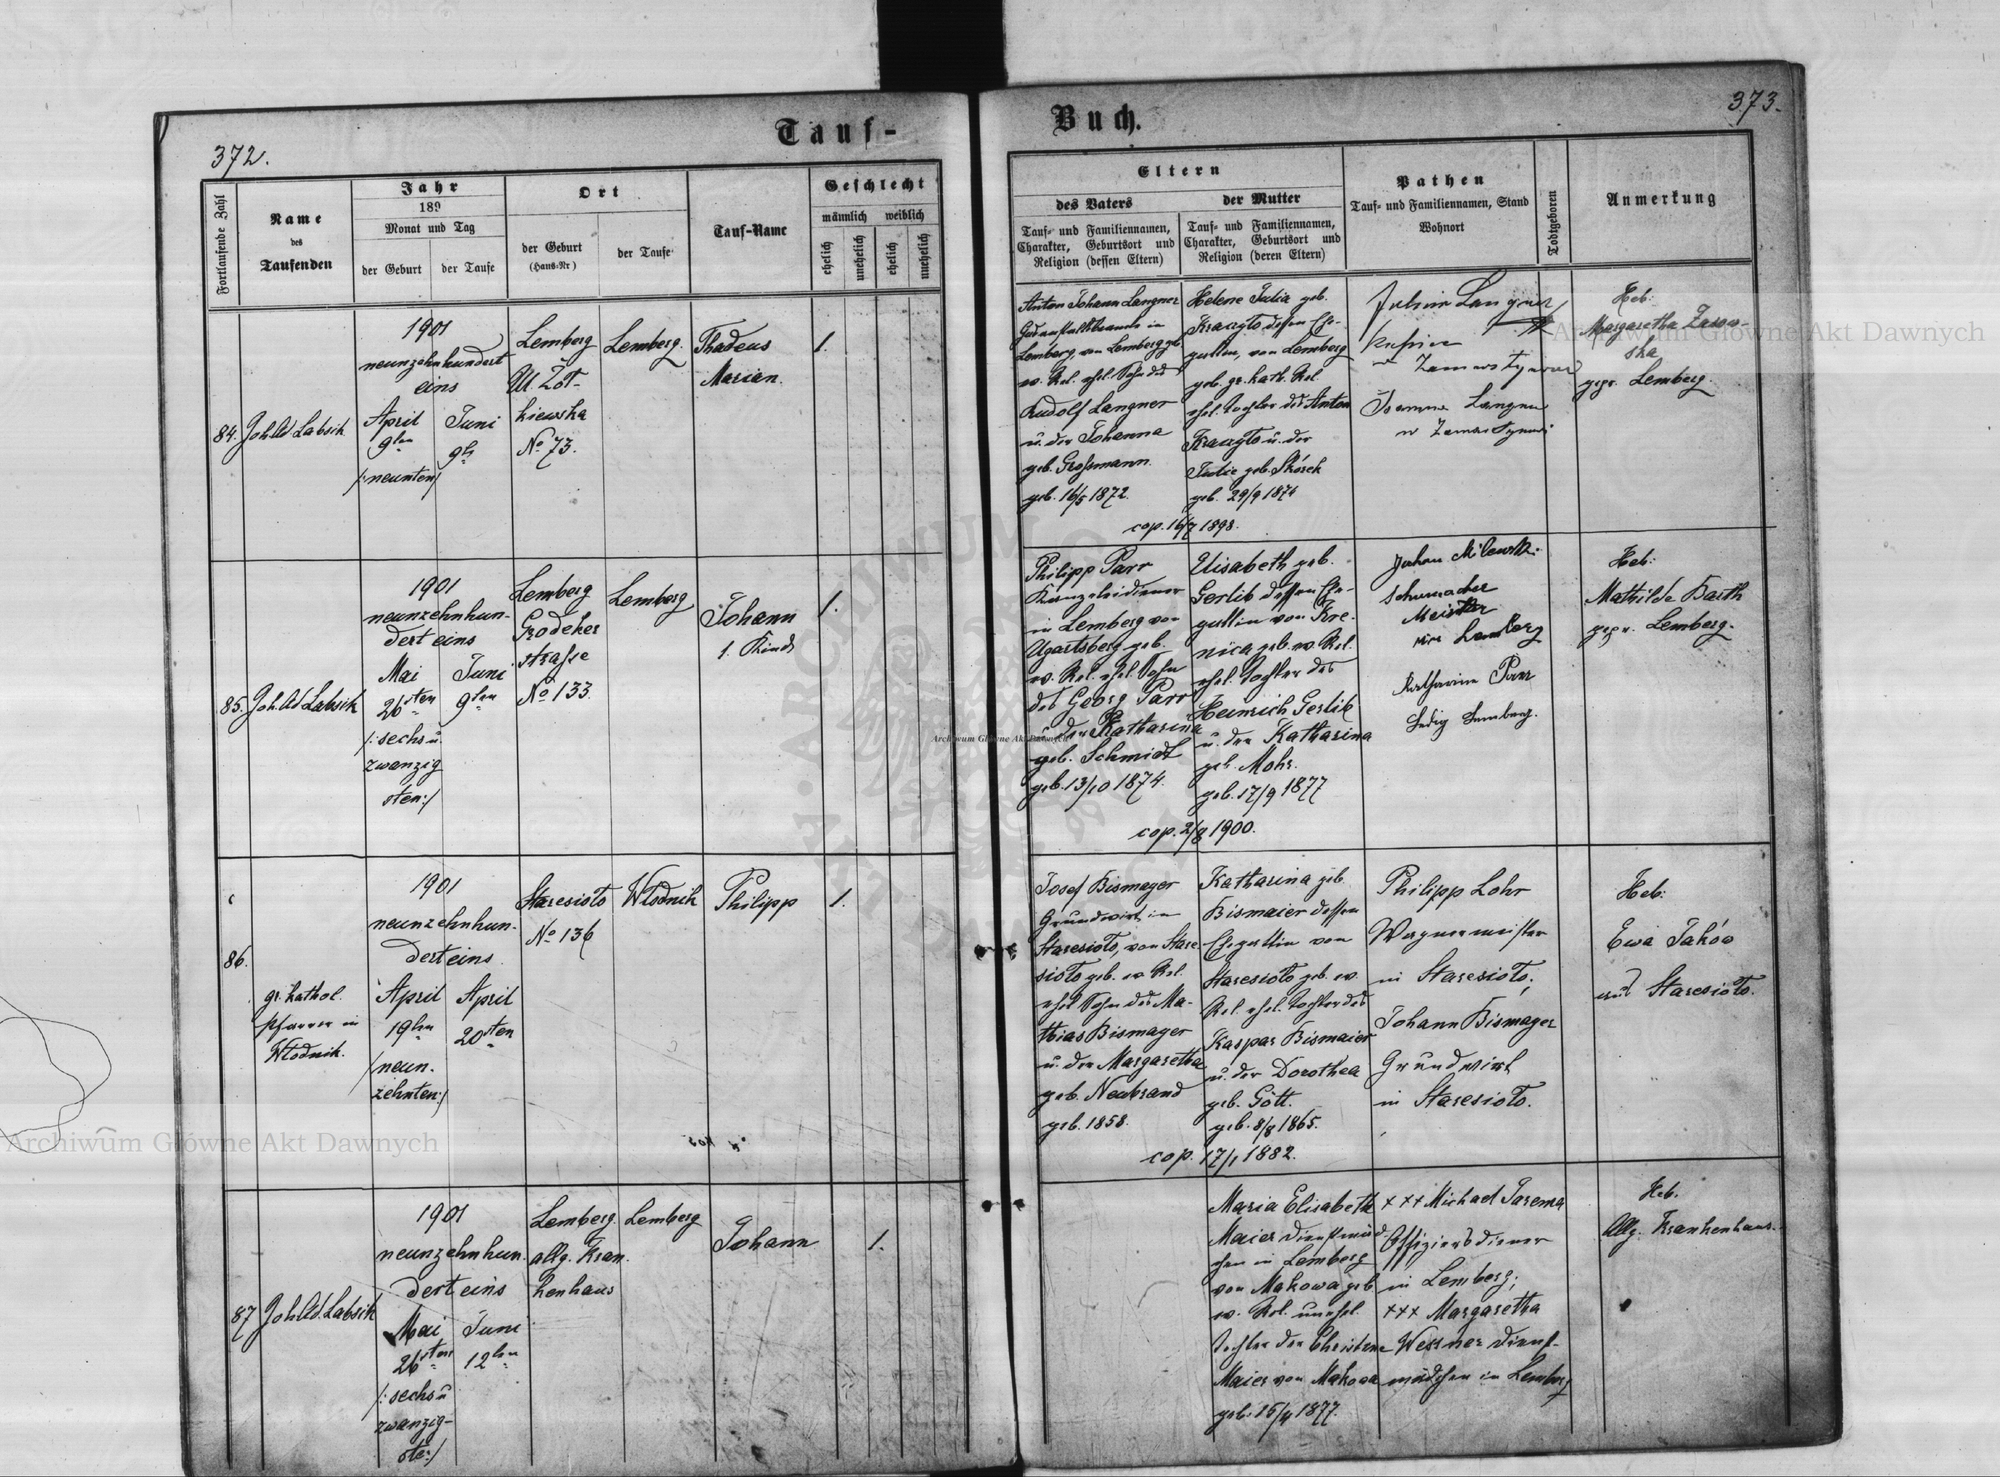 Tauf-
Buch.
372.
373.
Fortlaufende Zahl
Name
des
Taufenden
Jahr
189
Monat und Tag
der Geburt
der Taufe
Ort
der Geburt
(Haus-Nr)
der Taufe
Tauf-Name
Geschlecht
männlich
weiblich
ehelich
unehelich
ehelich
unehelich
Eltern
des Vaters
Tauf- und Familiennamen,
Charakter, Geburtsort und
Religion (dessen Eltern)
der Mutter
Tauf- und Familiennamen,
Charakter, Geburtsort und
Religion (deren Eltern)
Pathen
Tauf- und Familiennamen, Stand
Wohnort
Todtgeboren
Anmerkung
84.
Joh. Ad Labsik
1901
neunzehnhundert
eins
April
9ten
/:neunten/
Juni
9ten
Lemberg
Ul. Zół-
kiewska
No 73.
Lemberg.
Thadeus
Marian.
1.
Anton Johann Langner
in
Lemberg, von Lemberg geb.
ev. Rel. ehel. Sohn des
Rudolf Langner
u. der Johanna
geb. Grossmann.
geb. 16/5 1872.
Helene Julia geb.
dessen Ehe-
gattin, von Lemberg
geb. gr. kath. Rel.
ehel. Tochter des Anton
u. der
Julie geb. Skórek
geb. 29/9 1874
cop. 16/7 1898.
Langner
Heb.
Margaretha
gepr. Lemberg.
85.
Joh. Ad Labsik
1901
neunzehnhun-
dert eins
Mai
26sten
/:sechs u.
zwanzig
sten:/
Juni
9ten
Lemberg
Grodeker
strasse
No 133.
Lemberg
Johann
1. Kind
1.
Philipp Parr
Kanzleidiener
in Lemberg von
Ugartsberg geb.
ev. Rel. ehel. Sohn
des Georg Parr
u. der Katharina
geb. Schmidt
geb. 13/10 1874.
Elisabeth geb.
Gerlib dessen Ehe-
gattin von Kre-
nica geb. ev. Rel.
ehel. Tochter des
Heinrich Gerlib
u. der Katharina
geb. Mohr.
geb. 17/9 1877
cop. 2/8 1900.
Johan Milewski
Schumacher
Meister
Lemberg
Katharina Parr
Ledig Lemberg.
Heb:
Mathilde Barth
gepr. Lemberg.
86.
gr. kathol.
Pfarrer in
Wlodnik.
1901
neunzehnhun-
dert eins
April
19ten
/neun-
zehnten:/
April
20sten
Staresioto
No 136
Wlodnik
Philipp
1.
Josef Bismayer
Grundwirt in
Staresioto, von Stare-
sioto geb. ev. Rel.
ehel. Sohn des Ma-
thias Bismayer
u. der Margaretha
geb. Neubrand
geb. 1858.
Katharina geb.
Bismaier dessen
Ehegattin von
Staresioto geb. ev.
Rel. ehel. Tochter des
Kaspar Bismaier
u. der Dorothea
geb. Gött.
geb. 8/8 1865.
cop. 17/1 1882.
Philipp Lohr
Wagnermeister
in Staresioto;
Johann Bismayer
Grundwirt
in Staresioto.
Heb:
Ewa Jaków
aus Staresioto.
87
Joh. Ad. Labsik
1901
neunzehnhun-
dert eins
Mai
26sten
/:sechs u
zwanzig-
ste:/
Juni
12ten
Lemberg.
allg. Kran-
kenhaus
Lemberg
Johann
1.
Maria Elisabeth
Maier Dienstmäd-
chen in Lemberg
von Makowa geb.
ev. Rel. unehel.
Tochter der Christene
Maier von Makowa
geb. 15/4 1877.
+++ Michael Jarema
Offiziersdiener
in Lemberg;
+++ Margaretha
Wessner Dienst-
mädchen in Lemberg
Heb.
Allg. Krankenhaus.
Archiwum Główne Akt Dawnych
Archiwum Główne Akt Dawnych
Archiwum Główne Akt Dawnych